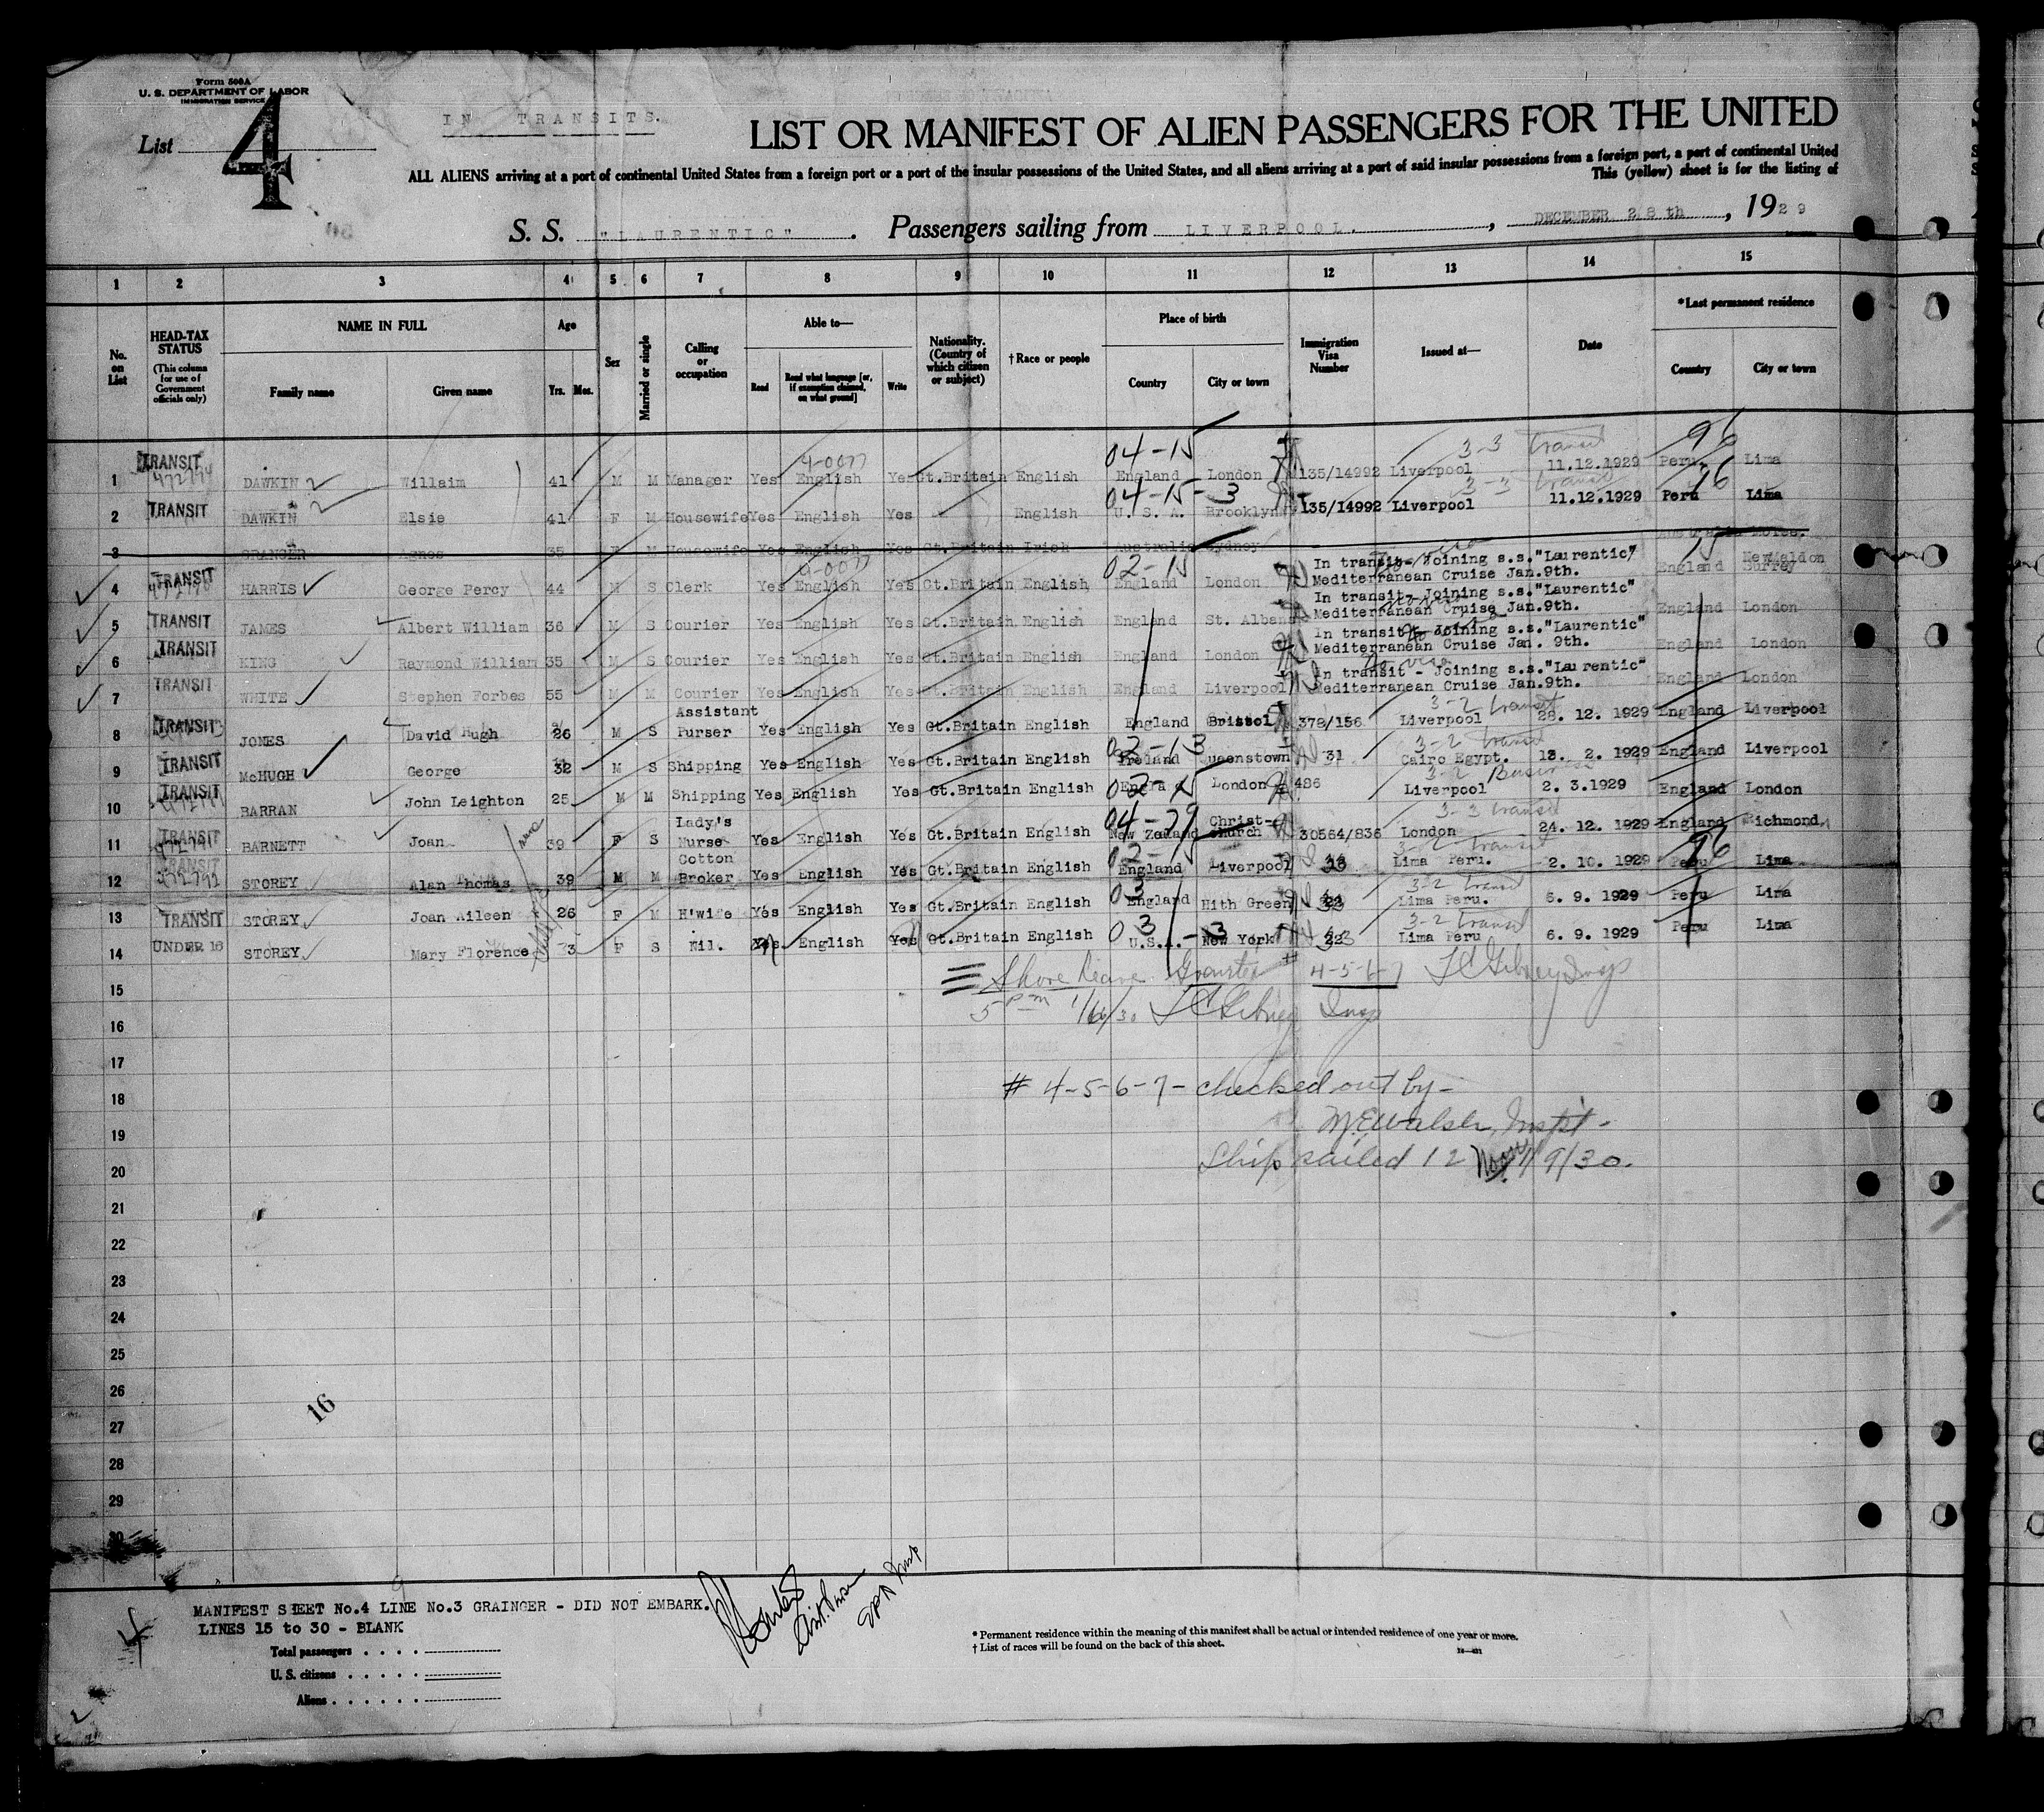 Form 500A
U. S. DEPARTMENT OF LABOR
IMMIGRATION SERVICE
List 4
IN TRANSITS.
LIST OR MANIFEST OF ALIEN PASSENGERS FOR THE UNITED
ALL ALIENS arriving at a port of continental United States from a foreign port or a port of the insular possessions of the United States, and all aliens arriving at a port of said insular possessions from a foreign port, a port of continental United
This (yellow) sheet is for the listing of
S. S. "LAURENTIC". Passengers sailing from LIVERPOOL., DECEMBER 28th, 1929
1 2 3 4 5 6 7 8 9 10 11 12 13 14 15
No. on List
HEAD-TAX STATUS (This column for use of Government officials only)
NAME IN FULL Family name Given name
Age Yrs. Mos.
Sex
Married or single
Calling or occupation
Able to— Read Read what language [or, if exemption claimed, on what ground] Write
Nationality. (Country of which citizen or subject)
†Race or people
Place of birth Country City or town
Immigration Visa Number
Issued at—
Date
*Last permanent residence Country City or town
04-15 3-3 transit 96
1 TRANSIT DAWKIN Willaim 41 M M Manager Yes English Yes Gt.Britain English England London 135/14992 Liverpool 11.12.1929 Peru Lima
04-15-3 3-3 transit 96
2 TRANSIT DAWKIN Elsie 41 F M Housewife Yes English Yes English U. S. A. Brooklyn 135/14992 Liverpool 11.12.1929 Peru Lima
3 GRANGER Agnes 35 F M Housewife Yes English Yes Gt.Britain Irish Australia Sydney
02-15 15
4 TRANSIT HARRIS George Percy 44 M S Clerk Yes English Yes Gt.Britain English England London In transit- Joining s.s."Laurentic" Mediterranean Cruise Jan.9th. England New Maldon Surrey
5 TRANSIT JAMES Albert William 36 M S Courier Yes English Yes Gt.Britain English England St. Albans In transit- Joining s.s."Laurentic" Mediterranean Cruise Jan.9th. England London
6 TRANSIT KING Raymond William 35 M S Courier Yes English Yes Gt.Britain English England London In transit- Joining s.s."Laurentic" Mediterranean Cruise Jan. 9th. England London
7 TRANSIT WHITE Stephen Forbes 55 M M Courier Yes English Yes Gt.Britain English England Liverpool In transit - Joining s.s."Laurentic" Mediterranean Cruise Jan.9th. England London
3-2 transit
8 TRANSIT JONES David Hugh 26 M S Assistant Purser Yes English Yes Gt.Britain English England Bristol 378/156 Liverpool 28. 12. 1929 England Liverpool
3-2 transit
9 TRANSIT McHUGH George 32 M S Shipping Yes English Yes Gt.Britain English Ireland Queenstown 31 Cairo Egypt. 18. 2. 1929 England Liverpool
3-2 Business
10 TRANSIT BARRAN John Leighton 25 M M Shipping Yes English Yes Gt.Britain English London 486 Liverpool 2. 3.1929 England London
04-29 3-3 transit
11 TRANSIT BARNETT Joan 39 F S Lady's Nurse Yes English Yes Gt.Britain English New Zealand Christ-church 30564/836 London 24. 12. 1929 England Richmond
02-15 3-2 transit 96
12 TRANSIT 472792 STOREY Alan Thomas 39 M M Cotton Broker Yes English Yes Gt.Britain English England Liverpool Lima Peru. 2. 10. 1929 Peru Lima
3-2 transit
13 TRANSIT STOREY Joan Aileen 26 F M H'wife Yes English Yes Gt.Britain English England Hith Green Lima Peru. 6. 9. 1929 Peru Lima
3-2 transit
14 UNDER 16 STOREY Mary Florence 3 F S Nil. Yes English Yes Gt.Britain English U.S.A. New York Lima Peru 6. 9. 1929 Peru Lima
15
Shore leave Granted # 4-5-6-7
5 pm 1/6/30
16
17
18 # 4-5-6-7- checked out by-
19 M.E.Walsh, Inspt-
20 Ship sailed 12 Noon 1/9/30.
21
22
23
24
25
26
27
16
28
29
30
MANIFEST SHEET No.4 LINE No.3 GRAINGER - DID NOT EMBARK.
LINES 15 to 30 - BLANK
Total passengers . . . .
U. S. citizens . . . . .
Aliens . . . . . .
* Permanent residence within the meaning of this manifest shall be actual or intended residence of one year or more.
† List of races will be found on the back of this sheet.